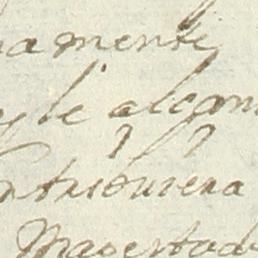 amente
y le alcan
ntribuiera
Magestad